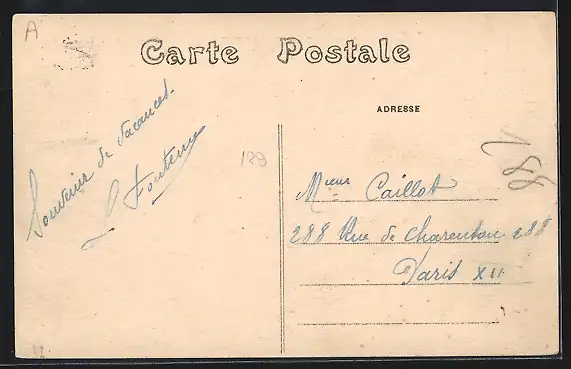 A
Carte Postale
ADRESSE
Souvenir de Vacances.
Fontenoy
129
188
Mieur Caillot
288 Rue de Charenton 288
Paris XII